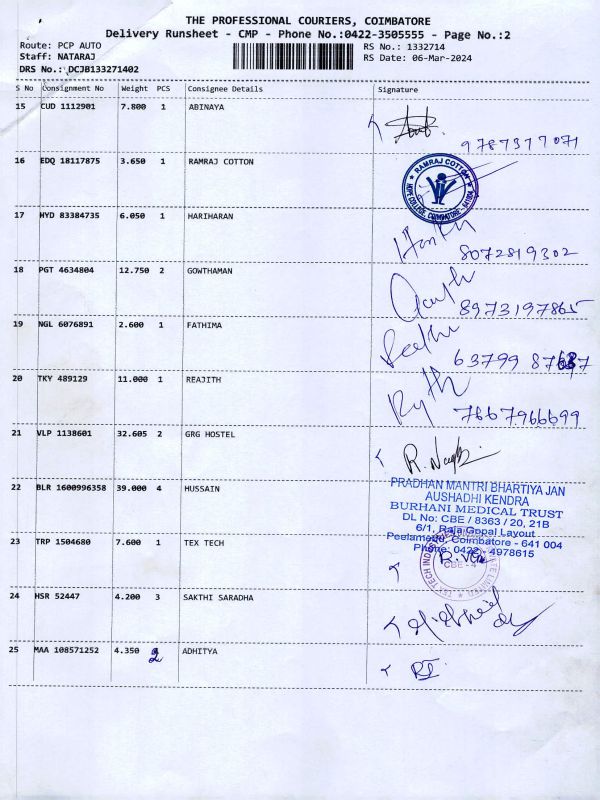 THE PROFESSIONAL COURIERS, COIMBATORE
Delivery Runsheet - CMP - Phone No.:0422-3505555 - Page No.:2
Route: PCP AUTO
Staff: NATARAJ
DRS No.: DCJB133271402
RS No.: 1332714
RS Date: 06-Mar-2024
S No Consignment No Weight PCS Consignee Details Signature
15 CUD 1112901 7.800 1 ABINAYA
9787377071
16 EDQ 18117875 3.650 1 RAMRAJ COTTON
RAMRAJ COTTON
HOPE COLLEGE, COIMBATORE - 641004
17 HYD 83384735 6.050 1 HARIHARAN
8072819302
18 PGT 4634804 12.750 2 GOWTHAMAN
8973197865
19 NGL 6076891 2.600 1 FATHIMA
63799
20 TKY 489129 11.000 1 REAJITH
7667966699
21 VLP 1138601 32.605 2 GRG HOSTEL
22 BLR 1600996358 39.000 4 HUSSAIN
PRADHAN MANTRI BHARTIYA JAN
AUSHADHI KENDRA
BURHANI MEDICAL TRUST
DL No: CBE / 8363 / 20, 21B
6/1, Raja Gopal Layout
Peelamedu, Coimbatore - 641 004
Phone: 0422 - 4978615
23 TRP 1504680 7.600 1 TEX TECH
CBE - 4
24 HSR 52447 4.200 3 SAKTHI SARADHA
25 MAA 108571252 4.350 2 ADHITYA